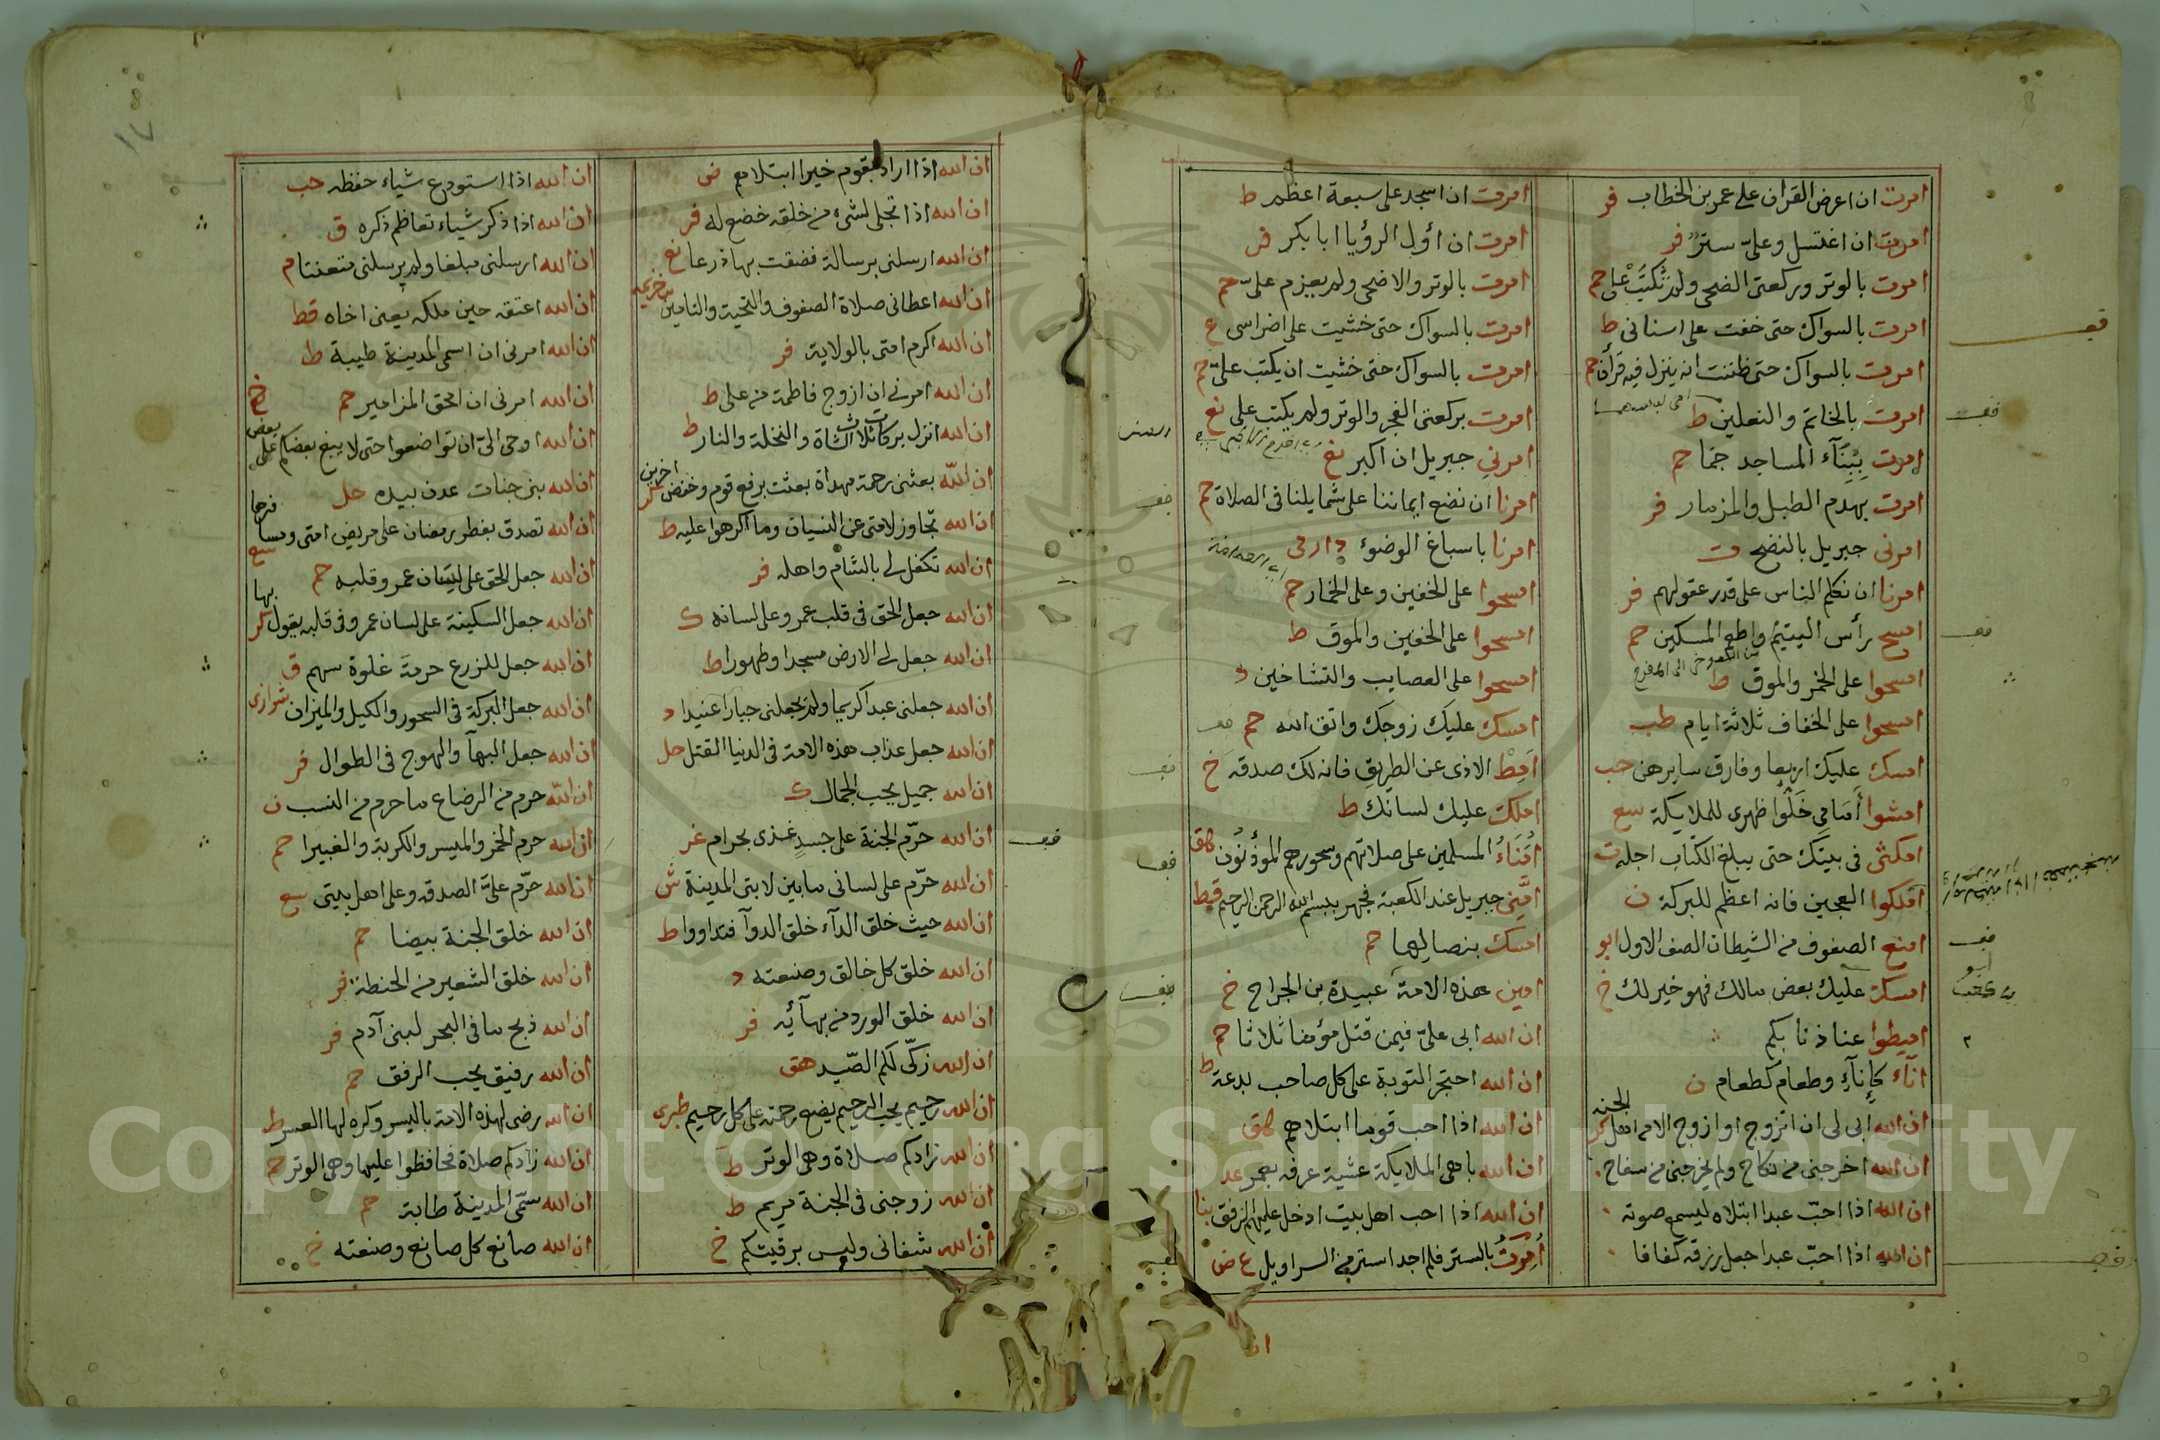 امرت ان اعرض القران على عمر بن الخطاب فر
امرت ان اغتسل وعلىّ ستر فر
امرت بالوتر وركعتى الضحى ولم تُكتَبْ على حم
امرت بالسواك حتى خفت على اسنانى ط
امرت بالسواك حتى ظننت انه ينزل فيه قرآن حم
امرت بالخاتم والنعلين ط
امرت بِبِنَآء المساجد جمّا حم
امرت بهدم الطبل والمزمار فر
امرنى جبريل بالنضح ت
امرنا ان نكلم الناس على قدر عقولهم فر
امسح برأس اليتيم واطعم المسكين حم
امسحوا على الخمر والموق ط
امسحوا على الخفاف ثلاثة ايام طب
امسك عليك اربعا وفارق سايرهن حب
امشوا أمَامِى خَلّوا ظهرى للملايكة سع
امكثى فى بيتك حتى يبلغ الكتاب اجله ت
املكوا العجين فانه اعظم للبركة ن
امنع الصفوف من الشيطان الصف الاول ابو
امسك عليك بعض مالك فهو خير لك خ
اميطوا عنا ذنابكم
انآء كإنآء وطعام كطعام ن
ان الله ابى لى ان اتزوج او ازوج الا من اهل الجنة كر
ان الله اخرجنى من نكاح ولم يخرجنى من سفاح
ان الله اذا احبّ عبدا ابتلاه ليسمع صوته
ان الله اذا احبّ عبدا جعل رزقه كفافا
امرت ان اسجد على سبعة اعظم ط
امرت ان أوِّل الرؤيا ابا بكر فر
امرت بالوتر والاضحى ولم يعزم علىّ حم
امرت بالسواك حتى خشيت على اضراسى ع
امرت بالسواك حتى خشيت ان يكتب علىّ حم
امرت بركعتى الفجر والوتر ولم يكتب على نع
امرنى جبريل ان اكبر نع
امرنا ان نضع ايماننا على شمايلنا فى الصلاة حم
امرنا باسباغ الوضوء دارمى
امسحوا على الخفين وعلى الخمار حم
امسحوا على الخفين والموق ط
امسحوا على العصايب والتشاخين د
امسك عليك زوجك واتق الله حم
اَمِطْ الاذى عن الطريق فانه لك صدقه خ
املك عليك لسانك ط
اُمَنَاءُ المسلمين على صلاتهم وسحورهم المؤذنون هق
اَمَّنِى جبريل عند الكعبة فجهر ببسم الله الرحمن الرحيم قط
امسك بنصالها حم
امين هذه الامة عبيدة بن الجراح خ
ان الله ابى علىّ فيمن قتل مؤمنا ثلاثا حم
ان الله احتجز التوبة على كل صاحب بدعة ط
ان الله اذا احب قوما ابتلاهم هق
ان الله باهى الملايكة عشية عرفه بعمر عد
ان الله اذا احب اهل بيت ادخل عليهم الرفق
اُمِرتُ بالستر فلم اجد استر من السراويل ع ض
ان
ان الله اذا اراد بقوم خيرا ابتلاهم ض
ان الله اذا تجلى لشىء من خلقه خضع له فر
ان الله ارسلنى برسالة فضقت بها ذرعا نع
ان الله اعطانى صلاة الصفوف والتحية والتامين خزيمه
ان الله اكرم امتى بالولاية فر
ان الله امرنى ان ازوج فاطمة من على ط
ان الله انزل بركات ثلاث الشاة والنخلة والنار ط
ان الله بعثنى رحمة مهداة بعثت برفع قوم وخفض اخرين كر
ان الله تجاوز لامتى عن النسيان وما اكرهوا عليه ط
ان الله تكفل لى بالشام واهله فر
ان الله جعل الحق فى قلب عمر وعلى لسانه ك
ان الله جعل لى الارض مسجدا وطهورا ط
ان الله جعلنى عبدا كريما ولم يجعلنى جبارا عنيدا د
ان الله جعل عذاب هذه الامة فى الدنيا القتل حل
ان الله جميل يحب الجمال ك
ان الله حرّم الجنة على جسدٍ غذى بحرام غر
ان الله حرّم على لسانى مابين لابتى المدينة ش
ان الله حيث خلق الدآء خلق الدوآ فتداووا ط
ان الله خلق كل خالق وصنعته د
ان الله خلق الورد من بهآئه فر
ان الله زكّى لكم الصّيد هق
ان الله رحيم يحب الرحيم يضع رحمته على كل رحيم طبرى
ان الله زادكم صلاة وهى الوتر ط
ان الله زوجنى فى الجنة مريم ط
ان الله شفانى وليس برقيتكم خ
ان الله اذا استودع شياء حفظه حب
ان الله اذا ذكر شياء تعاظم ذكره ق
ان الله ارسلنى مبلغا ولم يرسلنى متعنتا م
ان الله اعتقه حين ملكه يعنى اخاه قط
ان الله امرنى ان اسمى المدينة طيبة ط
ان الله امرنى ان امحق المزامير حم
ان الله اوحى الىّ ان تواضعوا حتى لا يبغ بعضكم على بعض خ
ان الله بنى جنات عدن بيده حل
ان الله تصدق بفطر رمضان على مريض امتى ومسافرها سع
ان الله جعل الحق على لسان عمر وقلبه حم
ان الله جعل السكينة على لسان عمر وفى قلبه يقول بها كر
ان الله جعل للزرع حرمة غلوة سهم ق
ان الله جعل البركة فى السحور والكيل والميزان شيرازى
ان الله جعل البهآ والهوج فى الطوال فر
ان الله حرم من الرضاع ما حرم من النسب ن
ان الله حرم الخمر والميسر والكوبة والغبيرا حم
ان الله حرّم علىّ الصدقه وعلى اهل بيتى سع
ان الله خلق الجنة بيضا حم
ان الله خلق الشعير من الحنطة فر
ان الله ذبح ما فى البحر لبنى آدم فر
ان الله رفيق يحب الرفق حم
ان الله رضى لهذه الامة باليسر وكره لها العسر ط
ان الله زادكم صلاة فحافظوا عليها وهى الوتر حم
ان الله سمّى المدينة طابة حم
ان الله صانع كل صانع وصنعته خ
Copyright © King Saud University